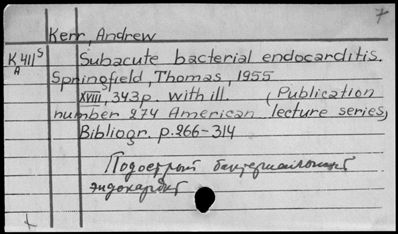 7
Kerr, Andrew
K411 S Subacute bacterial endocarditis.
A
Springfield, Thomas, 1955
XVIII S, 343p. with ill. (Publication
number 274 American lecture series)
Bibliogr. p.266-314
Подострый бактериальный
эндокардит